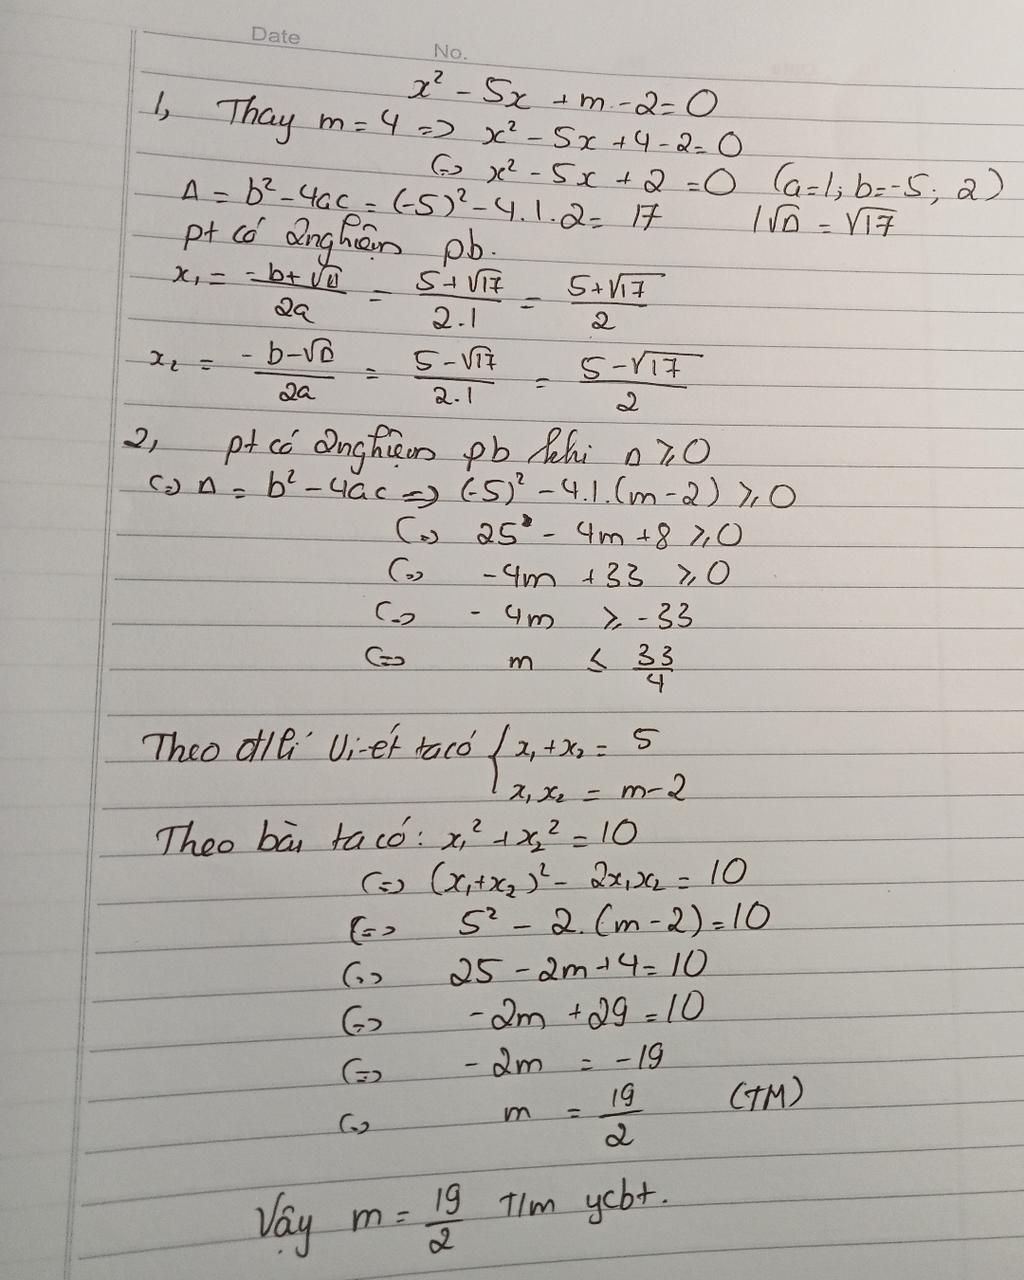 Date
No.
x² - 5x + m - 2 = 0
1, Thay m = 4 => x² - 5x + 4 - 2 = 0
<=> x² - 5x + 2 = 0 (a=1; b=-5; 2)
Δ = b² - 4ac = (-5)² - 4.1.2 = 17 | √Δ = √17
pt có 2 nghiệm pb.
x₁ = (-b+√Δ)/2a = (5+√17)/2.1 = (5+√17)/2
x₂ = (-b-√Δ)/2a = (5-√17)/2.1 = (5-√17)/2
2, pt có 2 nghiệm pb khi Δ ≥ 0
<=> Δ = b² - 4ac => (-5)² - 4.1.(m-2) ≥ 0
<=> 25 - 4m + 8 ≥ 0
<=> -4m + 33 ≥ 0
<=> -4m ≥ -33
<=> m ≤ 33/4
Theo đ/lí Vi-ét ta có { x₁ + x₂ = 5
x₁x₂ = m-2
Theo bài ta có: x₁² + x₂² = 10
<=> (x₁+x₂)² - 2x₁x₂ = 10
<=> 5² - 2.(m-2) = 10
<=> 25 - 2m + 4 = 10
<=> -2m + 29 = 10
<=> -2m = -19
<=> m = 19/2 (TM)
Vậy m = 19/2 T/m ycbt.